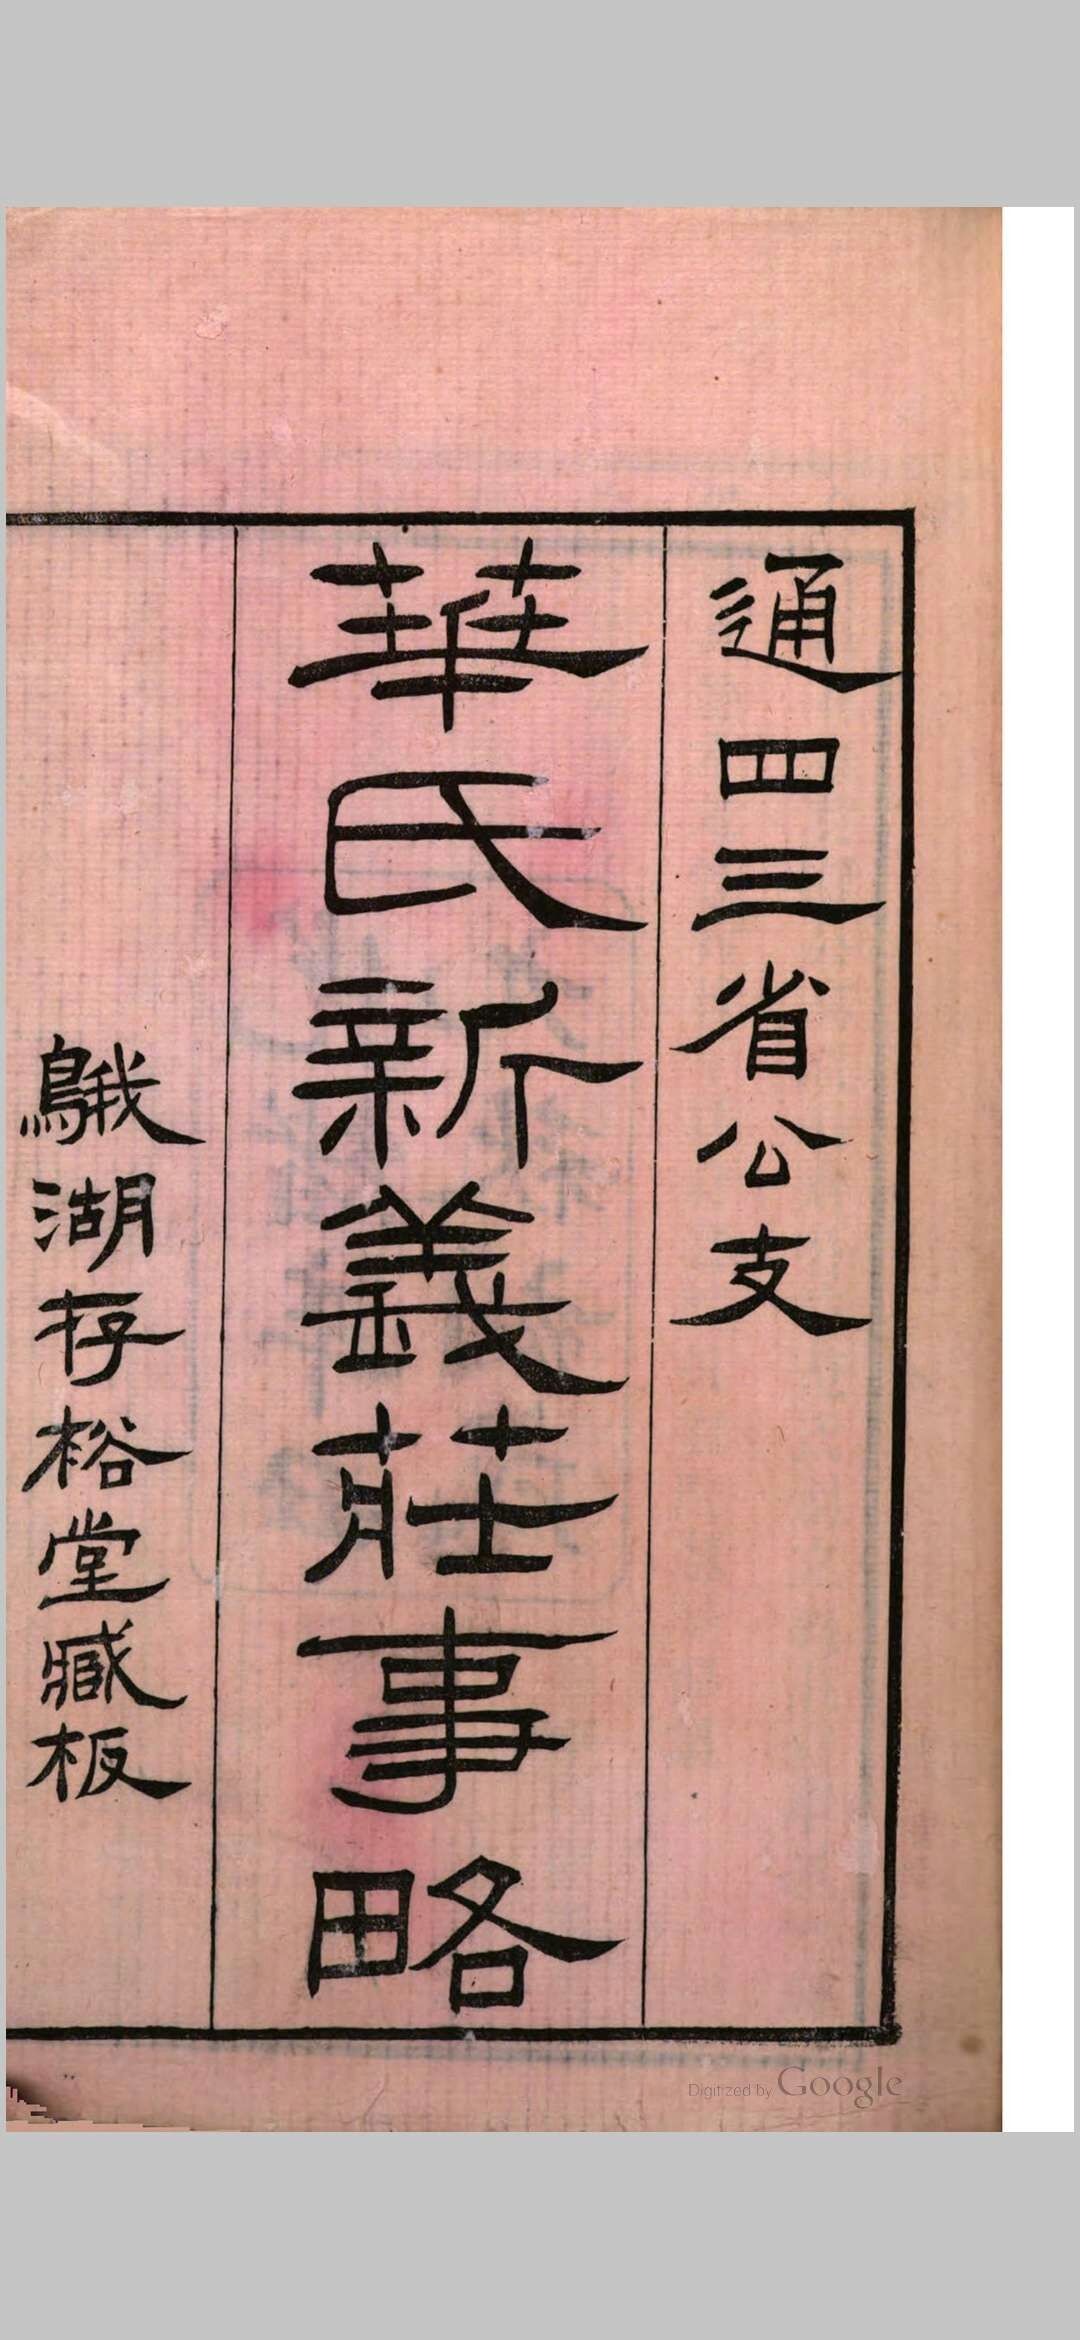 通四三省公支
華氏新義莊事略
鵞湖存裕堂藏板
Digitized by Google